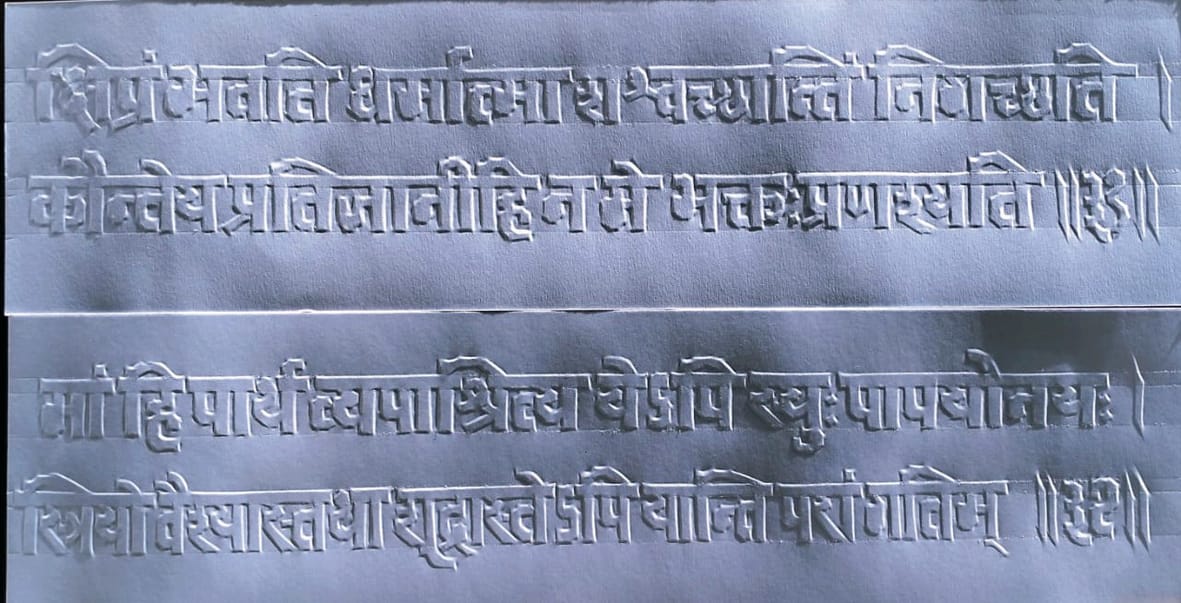 क्षिप्रं भवति धर्मात्मा शश्वच्छान्तिं निगच्छति ।
कौन्तेय प्रतिजानीहि न मे भक्तः प्रणश्यति ॥३१॥
मां हि पार्थ व्यपाश्रित्य येऽपि स्युः पापयोनयः ।
स्त्रियो वैश्यास्तथा शूद्रास्तेऽपि यान्ति परां गतिम् ॥३२॥